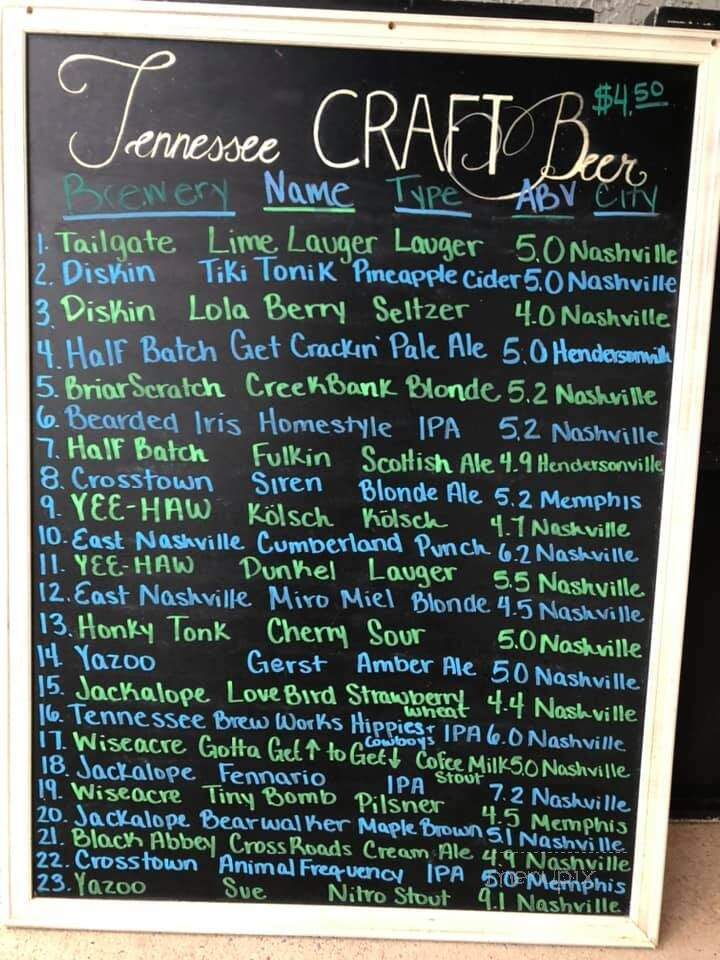 Tennessee CRAFT Beer $4.50
Brewery Name Type ABV City
1. Tailgate Lime Lauger Lauger 5.0 Nashville
2. Diskin Tiki Tonik Pineapple Cider 5.0 Nashville
3. Diskin Lola Berry Seltzer 4.0 Nashville
4. Half Batch Get Crackin' Pale Ale 5.0 Hendersonville
5. Briar Scratch CreekBank Blonde 5.2 Nashville
6. Bearded Iris Homestyle IPA 5.2 Nashville
7. Half Batch Fulkin Scottish Ale 4.9 Hendersonville
8. Crosstown Siren Blonde Ale 5.2 Memphis
9. YEE-HAW Kölsch Kölsch 4.7 Nashville
10. East Nashville Cumberland Punch 6.2 Nashville
11. YEE-HAW Dunkel Lauger 5.5 Nashville
12. East Nashville Miro Miel Blonde 4.5 Nashville
13. Honky Tonk Cherry Sour 5.0 Nashville
14. Yazoo Gerst Amber Ale 5.0 Nashville
15. Jackalope Love Bird Strawberry wheat 4.4 Nashville
16. Tennessee Brew Works Hippies + Cowboys IPA 6.0 Nashville
17. Wiseacre Gotta Get ↑ to Get ↓ Cofee Milk Stout 5.0 Nashville
18. Jackalope Fennario IPA 7.2 Nashville
19. Wiseacre Tiny Bomb Pilsner 4.5 Memphis
20. Jackalope Bearwalker Maple Brown 5.1 Nashville
21. Black Abbey CrossRoads Cream Ale 4.9 Nashville
22. Crosstown Animal Frequency IPA 5.0 Memphis
23. Yazoo Sue Nitro Stout 9.1 Nashville
menupix